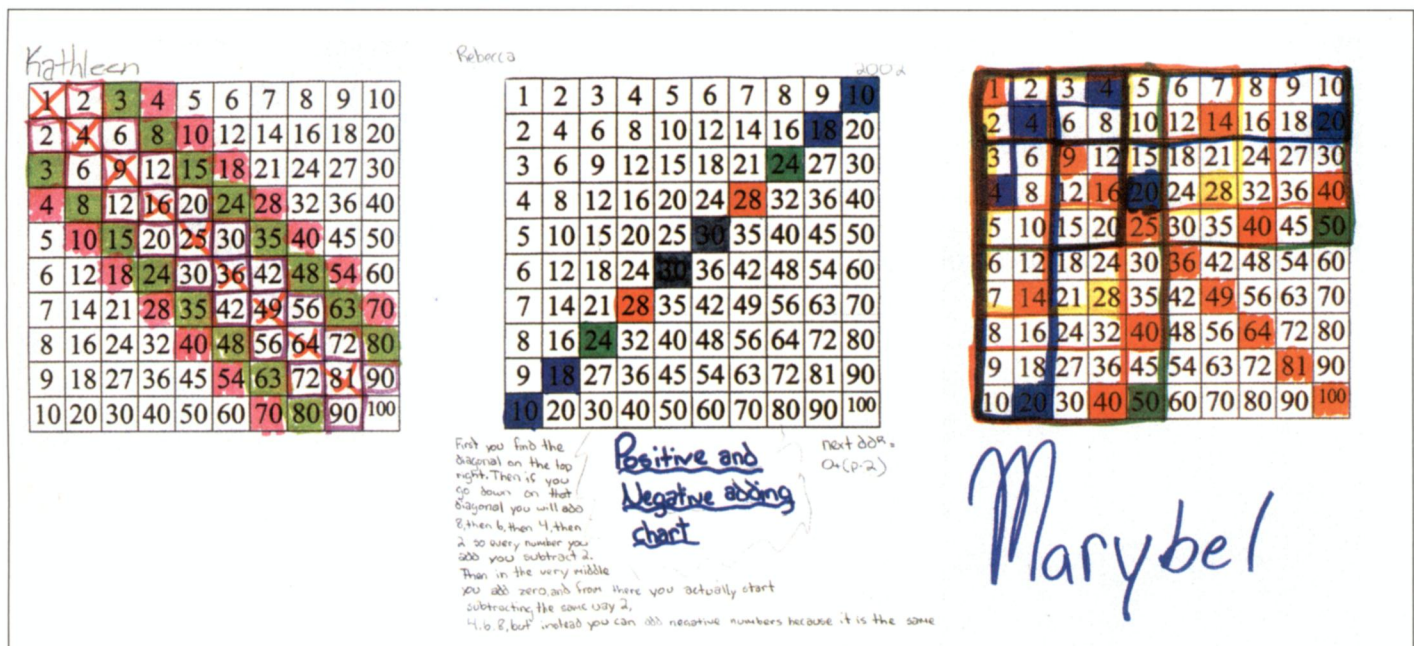 Kathleen
1 2 3 4 5 6 7 8 9 10
2 4 6 8 10 12 14 16 18 20
3 6 9 12 15 18 21 24 27 30
4 8 12 16 20 24 28 32 36 40
5 10 15 20 25 30 35 40 45 50
6 12 18 24 30 36 42 48 54 60
7 14 21 28 35 42 49 56 63 70
8 16 24 32 40 48 56 64 72 80
9 18 27 36 45 54 63 72 81 90
10 20 30 40 50 60 70 80 90 100
Rebecca
2002
1 2 3 4 5 6 7 8 9 10
2 4 6 8 10 12 14 16 18 20
3 6 9 12 15 18 21 24 27 30
4 8 12 16 20 24 28 32 36 40
5 10 15 20 25 30 35 40 45 50
6 12 18 24 30 36 42 48 54 60
7 14 21 28 35 42 49 56 63 70
8 16 24 32 40 48 56 64 72 80
9 18 27 36 45 54 63 72 81 90
10 20 30 40 50 60 70 80 90 100
First you find the
diagonal on the top
right. Then if you
go down on that
diagonal you will add
8, then 6, then 4, then
2 so every number you
add you subtract 2.
Then in the very middle
you add zero, and from there you actually start
subtracting the same way 2,
4, 6, 8, but instead you can add negative numbers because it is the same
Positive and
Negative adding
chart
next
1 2 3 4 5 6 7 8 9 10
2 4 6 8 10 12 14 16 18 20
3 6 9 12 15 18 21 24 27 30
4 8 12 16 20 24 28 32 36 40
5 10 15 20 25 30 35 40 45 50
6 12 18 24 30 36 42 48 54 60
7 14 21 28 35 42 49 56 63 70
8 16 24 32 40 48 56 64 72 80
9 18 27 36 45 54 63 72 81 90
10 20 30 40 50 60 70 80 90 100
Marybel